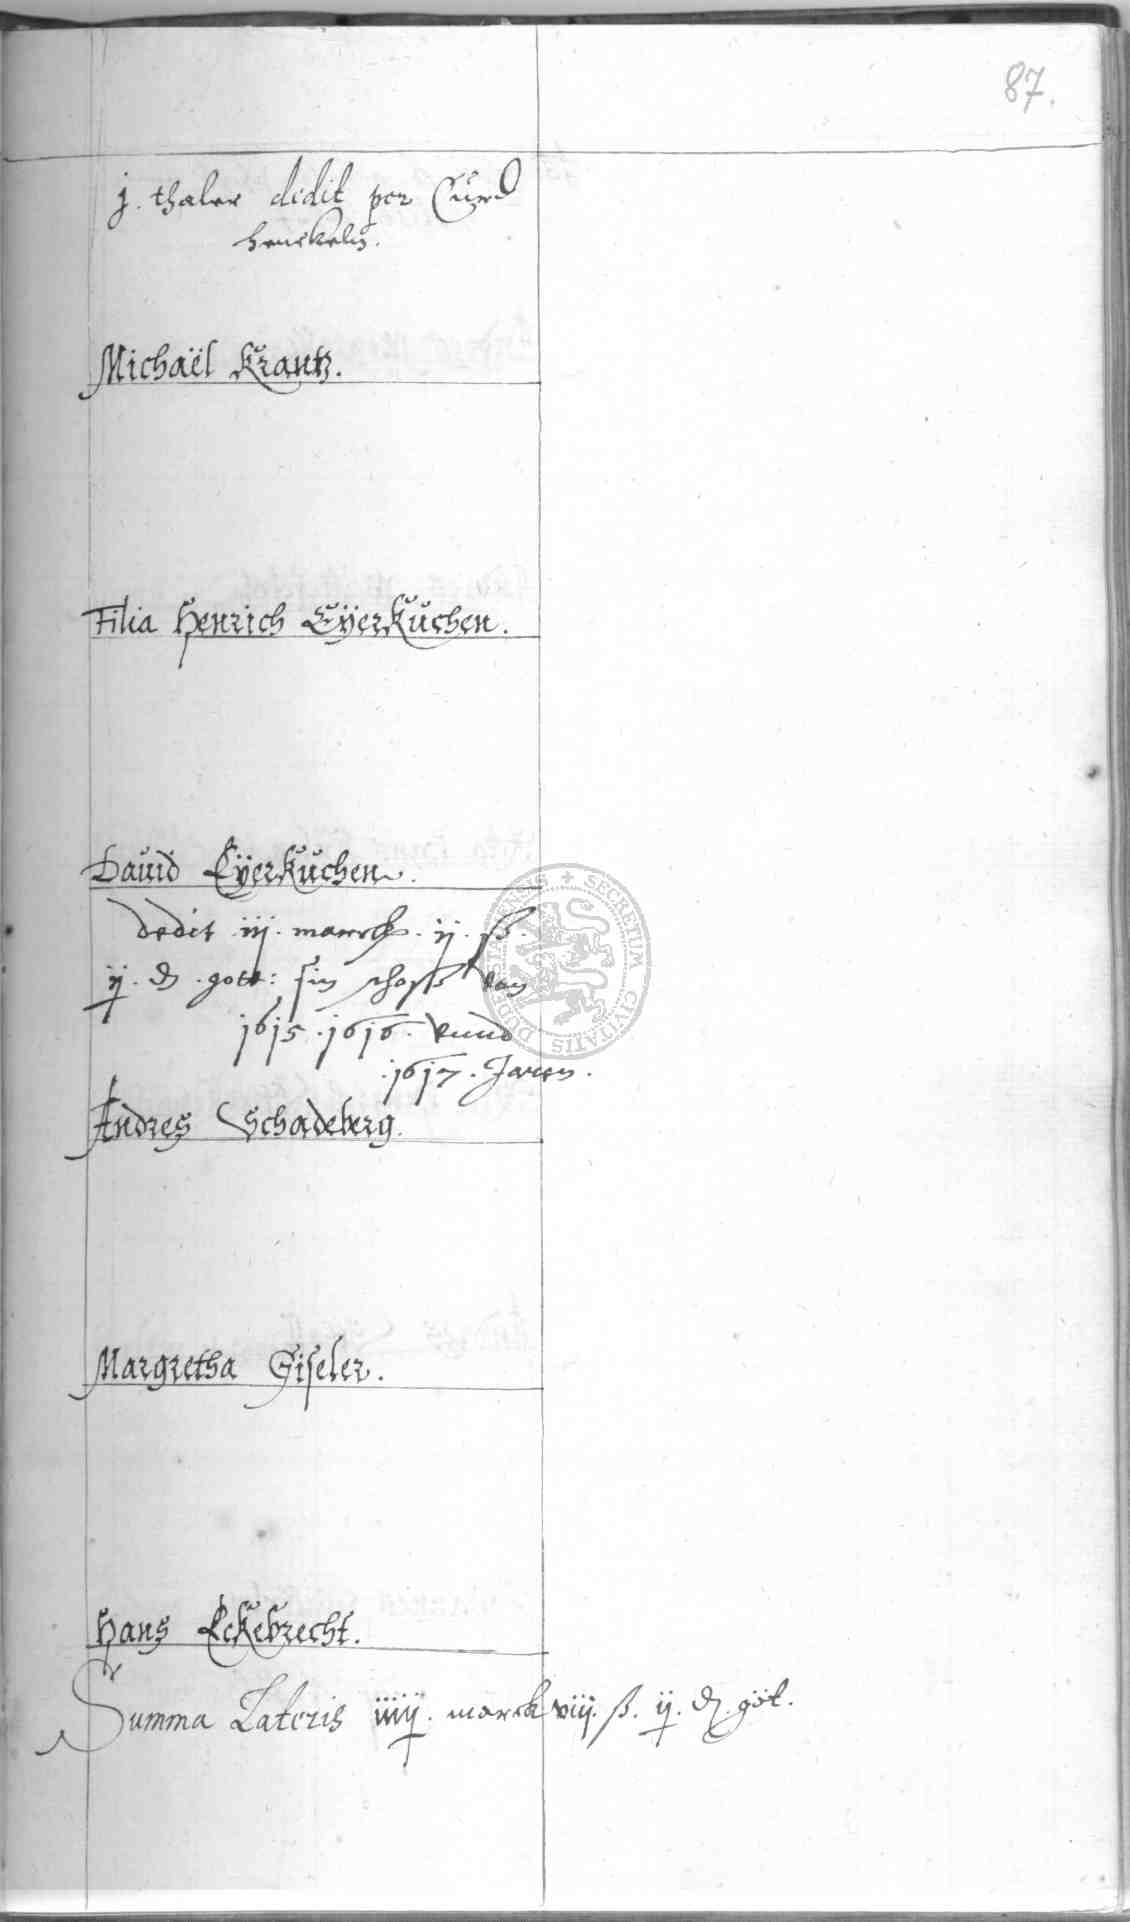 87.
j. thaler dedit per Curd
henckeln.
Michaël Krantz.
Filia Henrich Eÿerkuchen.
Dauid Eÿerkuchen.
dedit iij. marck. ij. ß.
ij. ₰. gott: sin schoss van
1615. 1616. vnnd
.1617. Jaren.
Andres Schadeberg.
Margretha Giseler.
Hans Eckebrecht.
Summa Lateris iiiij. marck viij. ß. ij. ₰. göt.
SECRETUM CIVITATIS DUDERSTADENSIS